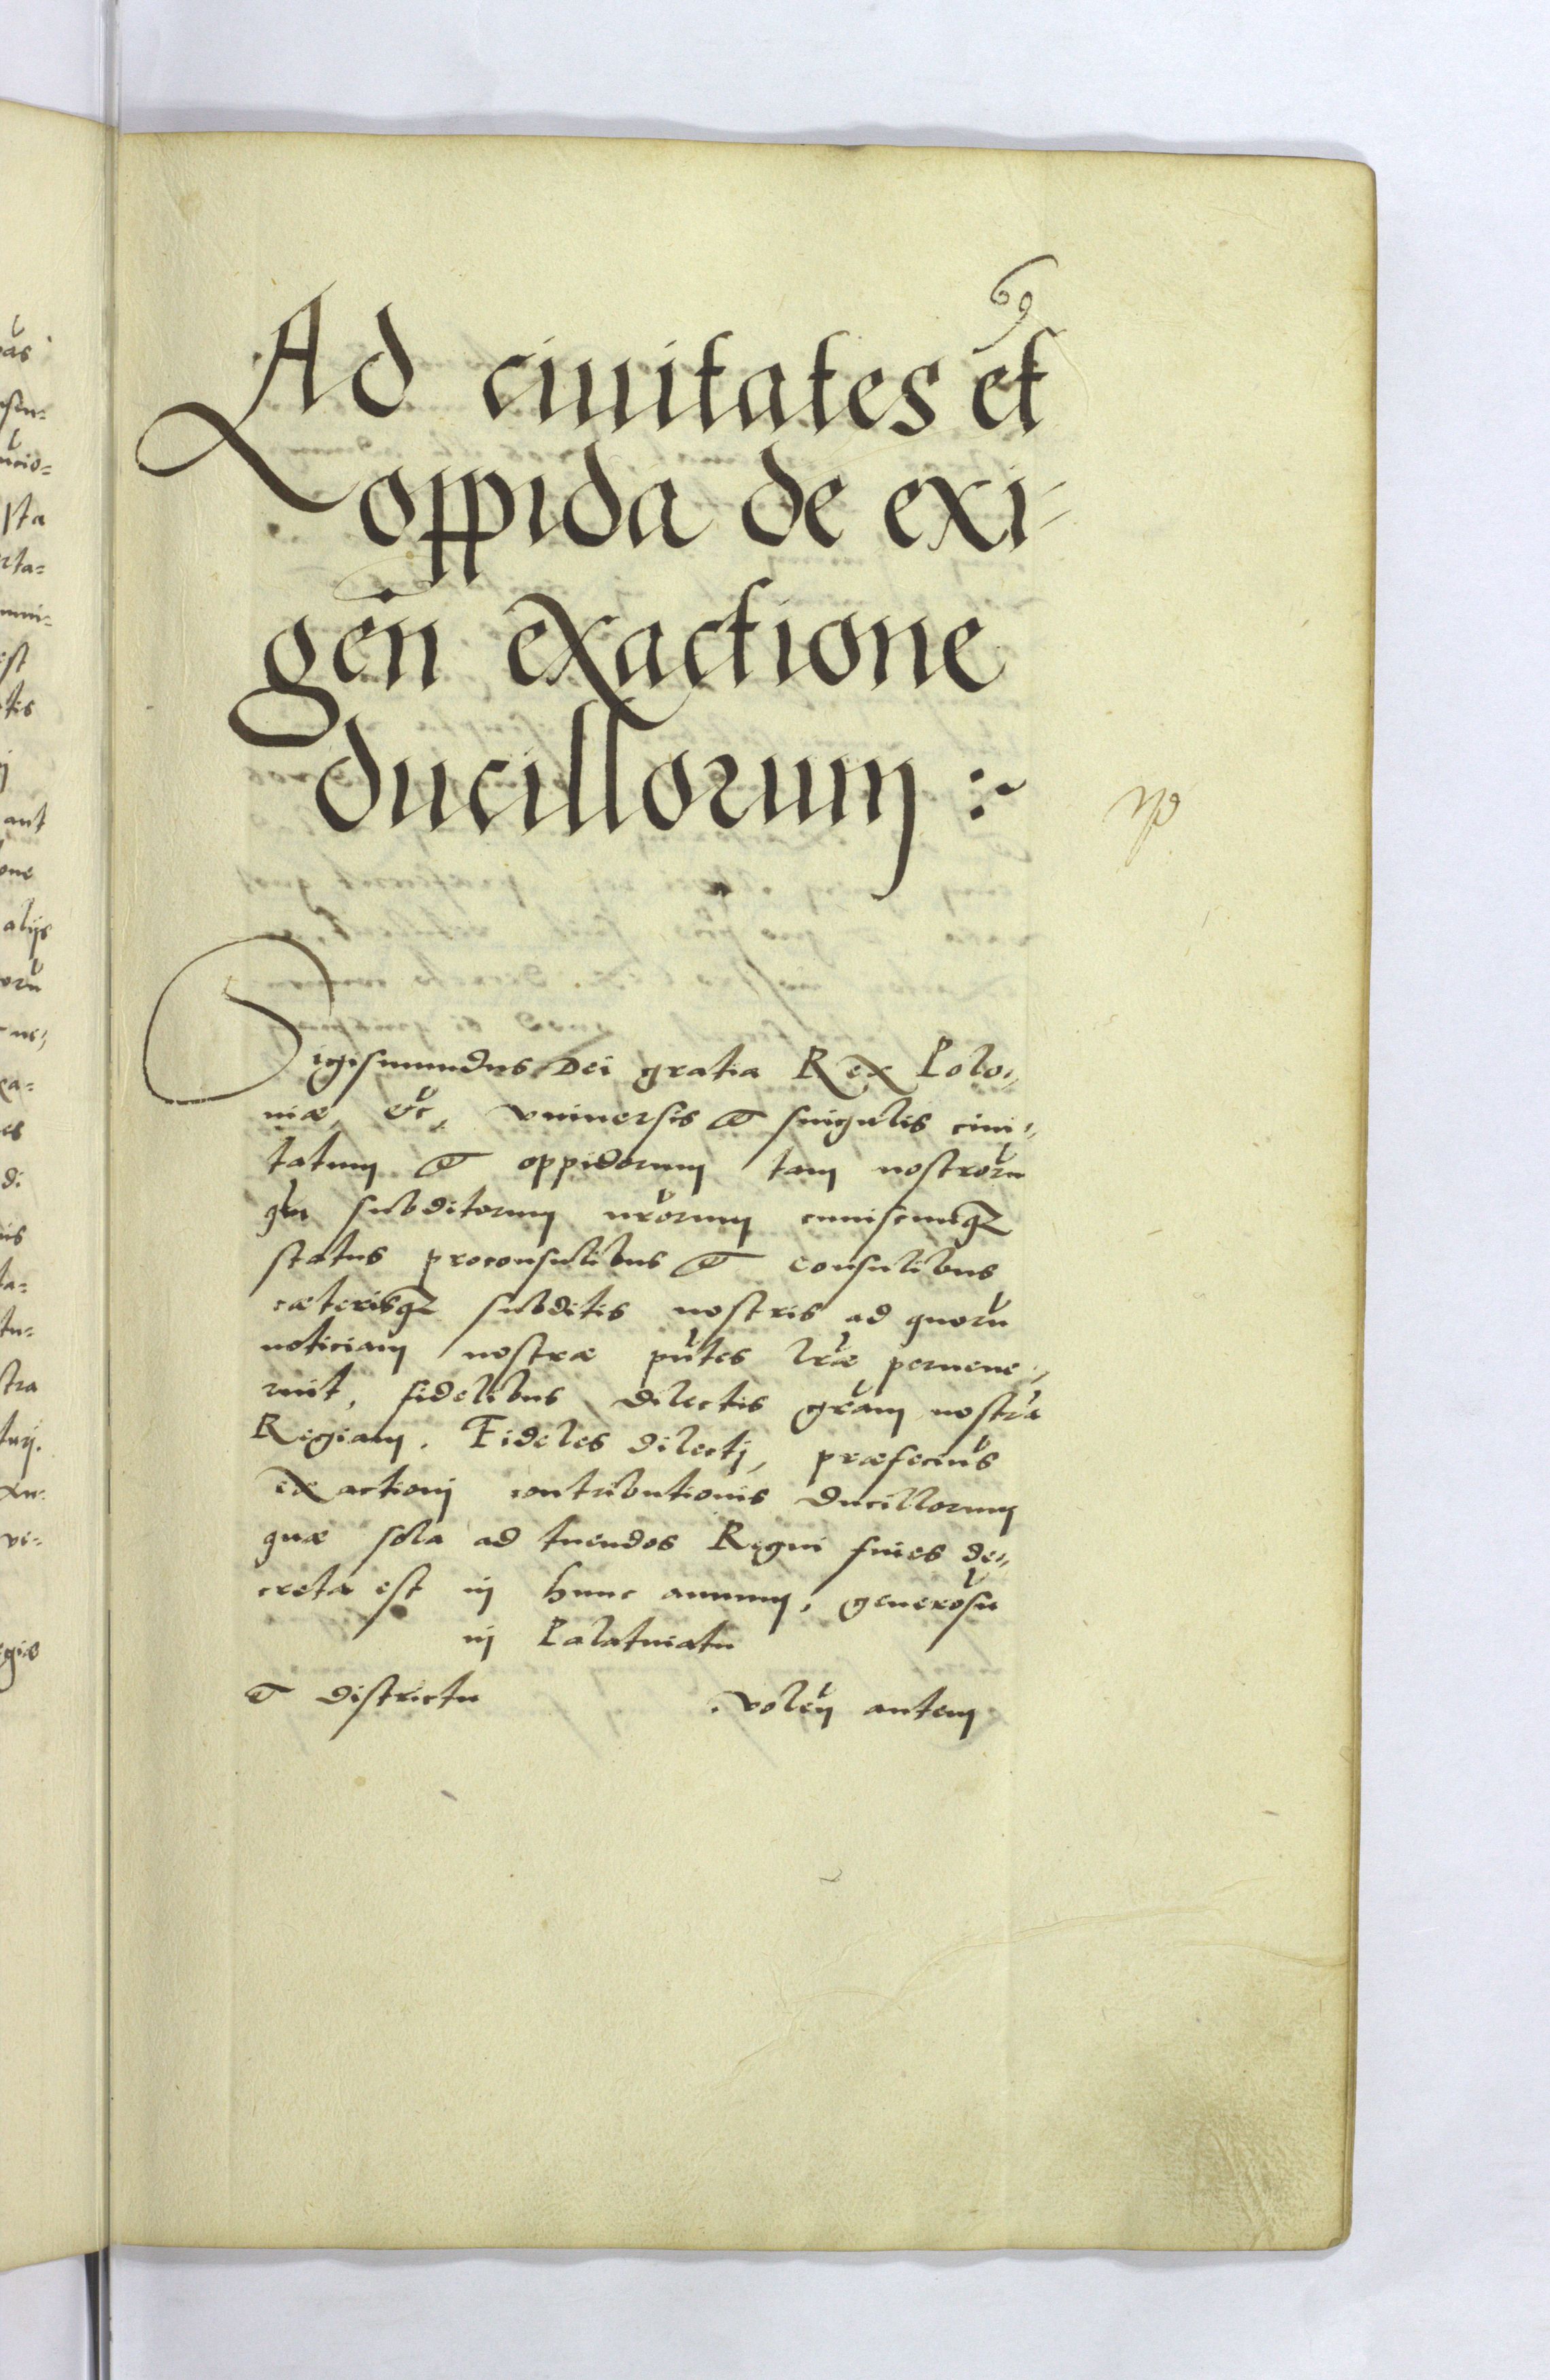 69
Ad ciuitates et
oppida de exi-
gen̄ exactione
ducillorum :~
Sigismundus Dei gratia Rex Polo-
niæ, &c, Vniuersis et singulis ciui-
tatum et oppidorum tam nostrorũ
qm subditorum nr̃orum cuiuscunqȝ
status proconsulibus et consulibus
cæterisqȝ subditis nostris ad quorũ
noticiam nostræ pñtes lr̃æ peruene-
rint, fidelibus dilectis gr̃am nostrã
Regiam. Fideles dilecti, præfecim̃s
exactioni contributionis ducillorum
quæ sola ad tuendos Regni fines de-
creta est in hunc annum, generosũ
in Palatinatu
et districtu . Volẽn autem